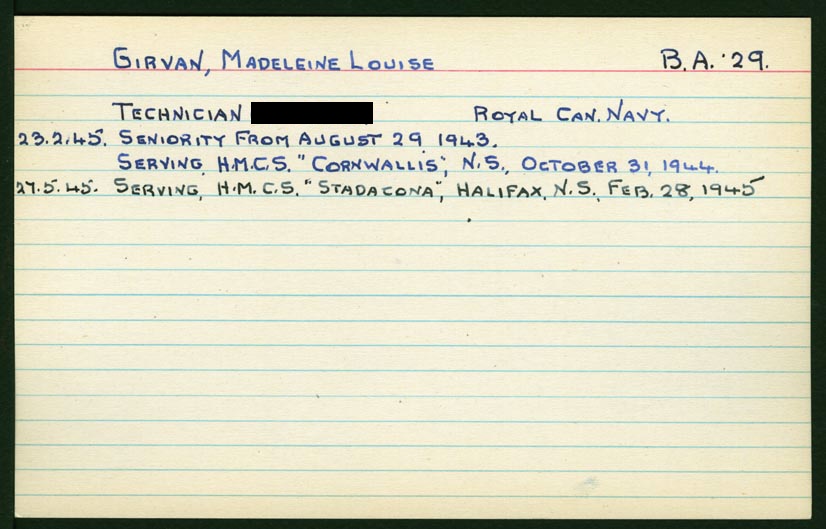 GIRVAN, MADELEINE LOUISE B.A. '29.
TECHNICIAN ROYAL CAN. NAVY.
23.2.45. SENIORITY FROM AUGUST 29 1943.
SERVING H.M.C.S. "CORNWALLIS", N.S., OCTOBER 31, 1944.
27.5.45. SERVING, H.M.C.S. "STADACONA", HALIFAX, N.S., FEB. 28, 1945